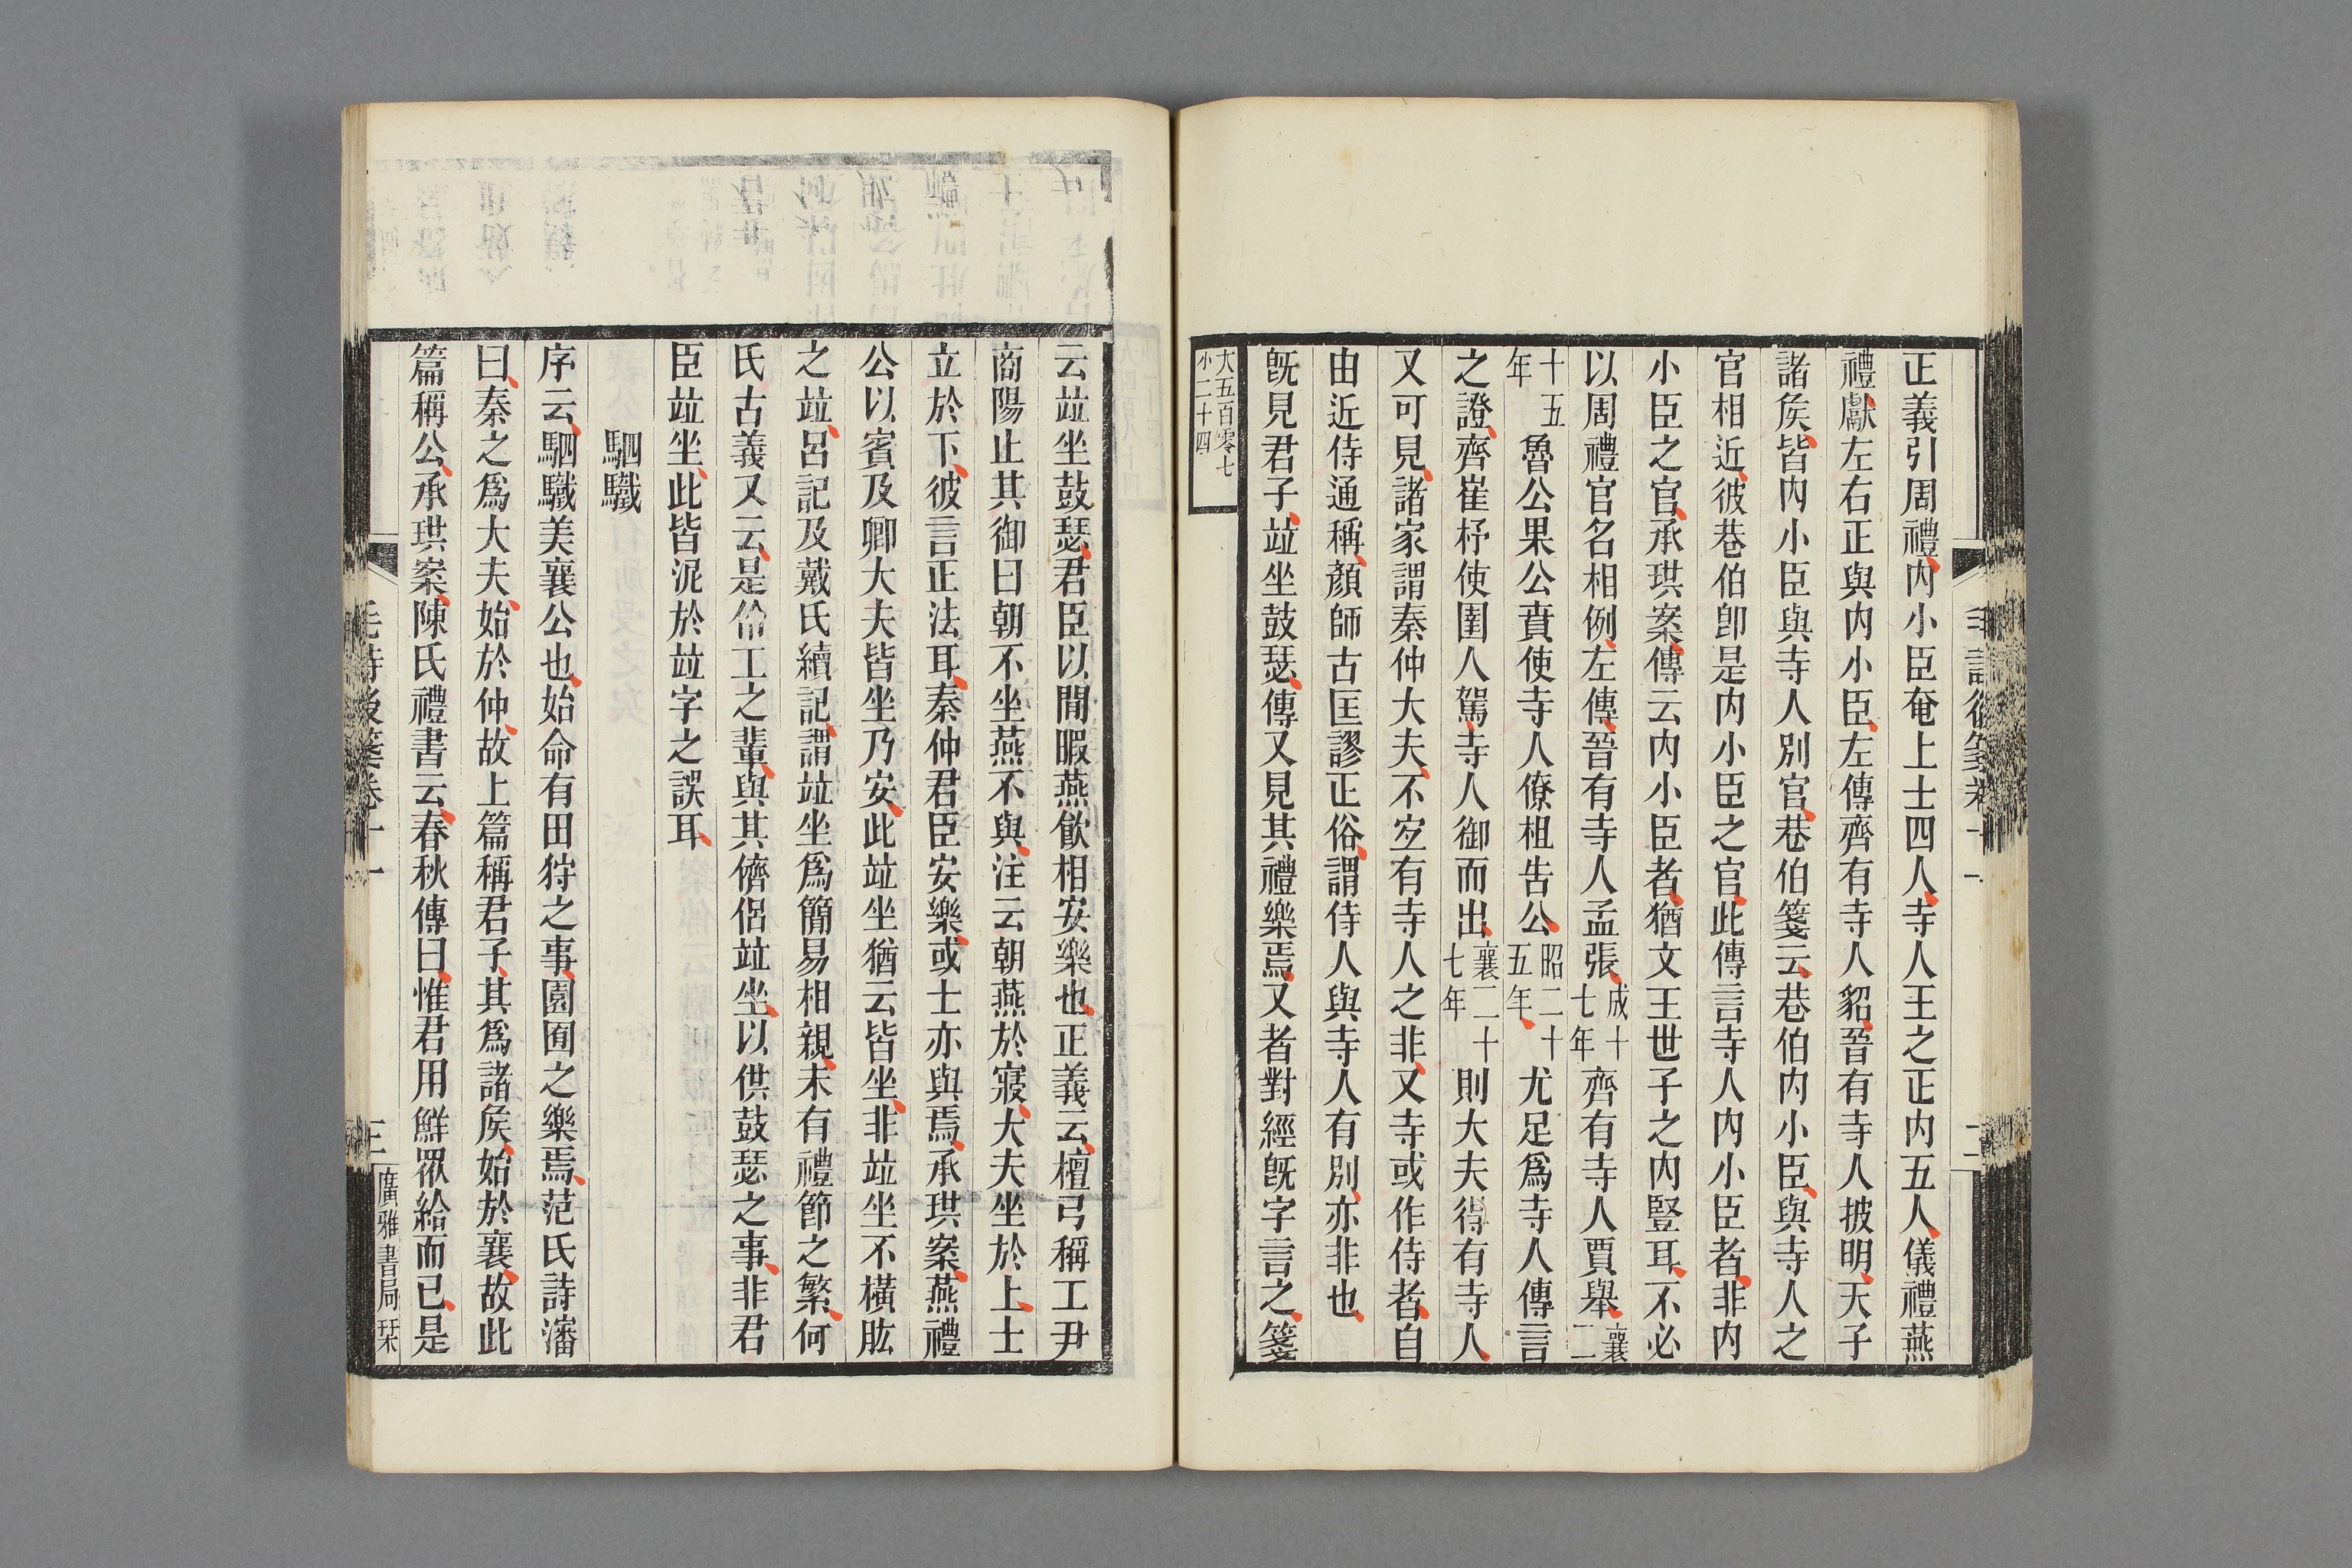 正義引周禮内小臣奄上士四人寺人王之正内五人儀禮燕
禮獻左右正與内小臣左傳齊有寺人貂晉有寺人披明天子
諸矦皆内小臣與寺人別官巷伯箋云巷伯内小臣與寺人之
官相近彼巷伯卽是内小臣之官此傳言寺人内小臣者非内
小臣之官承珙案傳云内小臣者猶文王世子之内豎耳不必
以周禮官名相例左傳晉有寺人孟張成十七年齊有寺人賈舉襄二
十五年魯公果公賁使寺人僚柤告公昭二十五年尤足爲寺人傳言
之證齊崔杼使圉人駕寺人御而出襄二十七年則大夫得有寺人
又可見諸家謂秦仲大夫不㝎有寺人之非又寺或作侍者自
由近侍通稱顏師古匡謬正俗謂侍人與寺人有別亦非也
旣見君子竝坐鼓瑟傳又見其禮樂焉又者對經旣字言之箋
大五百零七
小二十四
毛詩後箋卷十一
二
云竝坐鼓瑟君臣以閒暇燕飮相安樂也正義云檀弓稱工尹
商陽止其御曰朝不坐燕不與注云朝燕於寢大夫坐於上士
立於下彼言正法耳秦仲君臣安樂或士亦與焉承珙案燕禮
公以賓及卿大夫皆坐乃安此竝坐猶云皆坐非竝坐不橫肱
之竝呂記及戴氏續記謂竝坐爲簡易相親未有禮節之繁何
氏古義又云是伶工之輩與其儕侶竝坐以供鼓瑟之事非君
臣竝坐此皆泥於竝字之誤耳
駟驖
序云駟驖美襄公也始命有田狩之事園囿之樂焉范氏詩瀋
曰秦之爲大夫始於仲故上篇稱君子其爲諸矦始於襄故此
篇稱公承珙案陳氏禮書云春秋傳曰惟君用鮮眾給而已是
毛詩後箋卷十一
三
廣雅書局栞